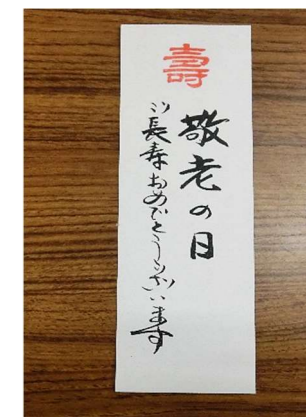 壽
敬老の日
ご長寿おめでとうございます